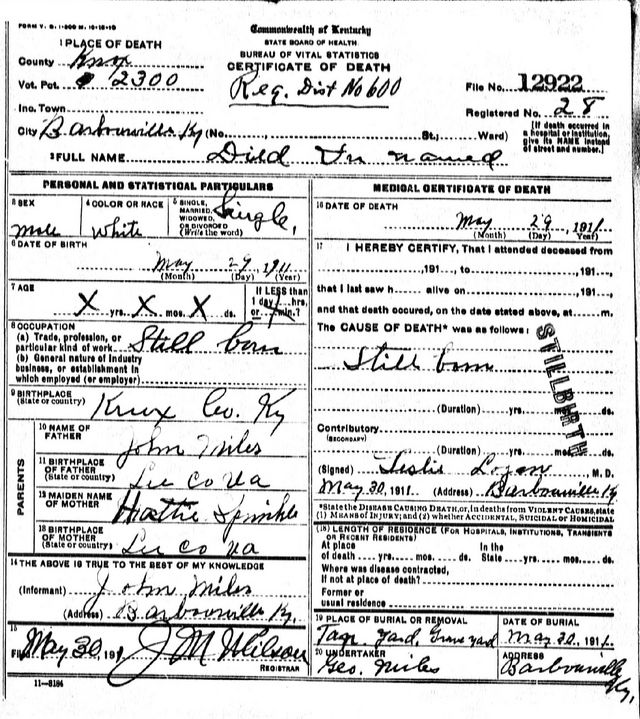 FORM V. S. 1-200 M 10-15-10
Commonwealth of Kentucky
STATE BOARD OF HEALTH.
BUREAU OF VITAL STATISTICS
CERTIFICATE OF DEATH
1 PLACE OF DEATH
County Knox
Vot. Pct. 2300
Reg. Dist No 600
File No. 12922
Registered No. 28
Inc. Town
City Barbourville Ky (No. St.; Ward)
[If death occurred in a hospital or institution, give its NAME instead of street and number.]
2 FULL NAME Died Un named
PERSONAL AND STATISTICAL PARTICULARS
3 SEX male
4 COLOR OR RACE White
5 SINGLE, MARRIED, WIDOWED, OR DIVORCED (Write the word) Single,
6 DATE OF BIRTH
May 29 1911
(Month) (Day) (Year)
7 AGE
X yrs. X mos. X ds.
If LESS than 1 day hrs. or min.?
8 OCCUPATION
(a) Trade, profession, or particular kind of work Still born
(b) General nature of industry business, or establishment in which employed (or employer)
9 BIRTHPLACE
(State or country) Knox Co. Ky
PARENTS
10 NAME OF FATHER John Miles
11 BIRTHPLACE OF FATHER (State or country) Lee Co Va
12 MAIDEN NAME OF MOTHER Hattie Sprinkle
13 BIRTHPLACE OF MOTHER (State or country) Lee Co Va
14 THE ABOVE IS TRUE TO THE BEST OF MY KNOWLEDGE
(Informant) John Miles
(Address) Barbourville Ky.
15
Filed May 30, 191 J M Wilson
REGISTRAR
11-8184
MEDICAL CERTIFICATE OF DEATH
16 DATE OF DEATH
May 29, 1911
(Month) (Day) (Year)
17 I HEREBY CERTIFY, That I attended deceased from
, 191 , to , 191 ,
that I last saw h alive on , 191 ,
and that death occured, on the date stated above, at m.
The CAUSE OF DEATH* was as follows:
Still born
STILLBIRTH
(Duration) yrs. mos. ds.
Contributory
(SECONDARY)
(Duration) yrs. mos. ds.
(Signed) Leslie Logan M. D.
May 30, 1911. (Address) Barbourville Ky.
*State the DISEASE CAUSING DEATH, or, in deaths from VIOLENT CAUSES, state (1) MEANS OF INJURY; and (2) whether ACCIDENTAL, SUICIDAL or HOMICIDAL
(18) LENGTH OF RESIDENCE (FOR HOSPITALS, INSTITUTIONS, TRANSIENTS OR RECENT RESIDENTS)
At place of death yrs. mos. ds. In the State yrs. mos. ds.
Where was disease contracted, if not at place of death?
Former or usual residence
19 PLACE OF BURIAL OR REMOVAL
Tan Yard, Grave yard
DATE OF BURIAL
May 30, 1911.
20 UNDERTAKER
Geo. Miles
ADDRESS
Barbourville Ky.